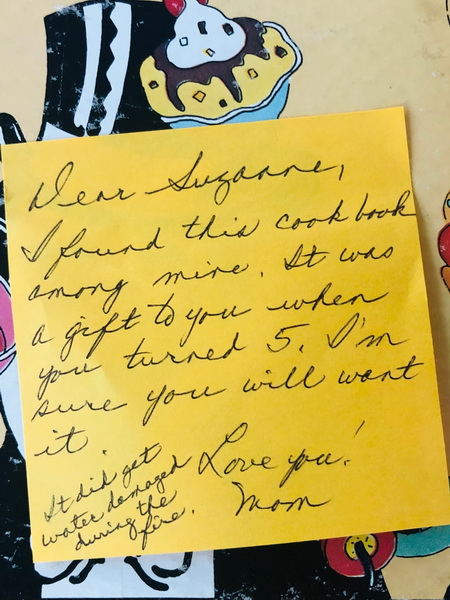 Dear Suzanne,
I found this cookbook
among mine. It was
a gift to you when
you turned 5. I'm
sure you will want
it.
Love you!
Mom
It did get
water damaged
during the
fire.